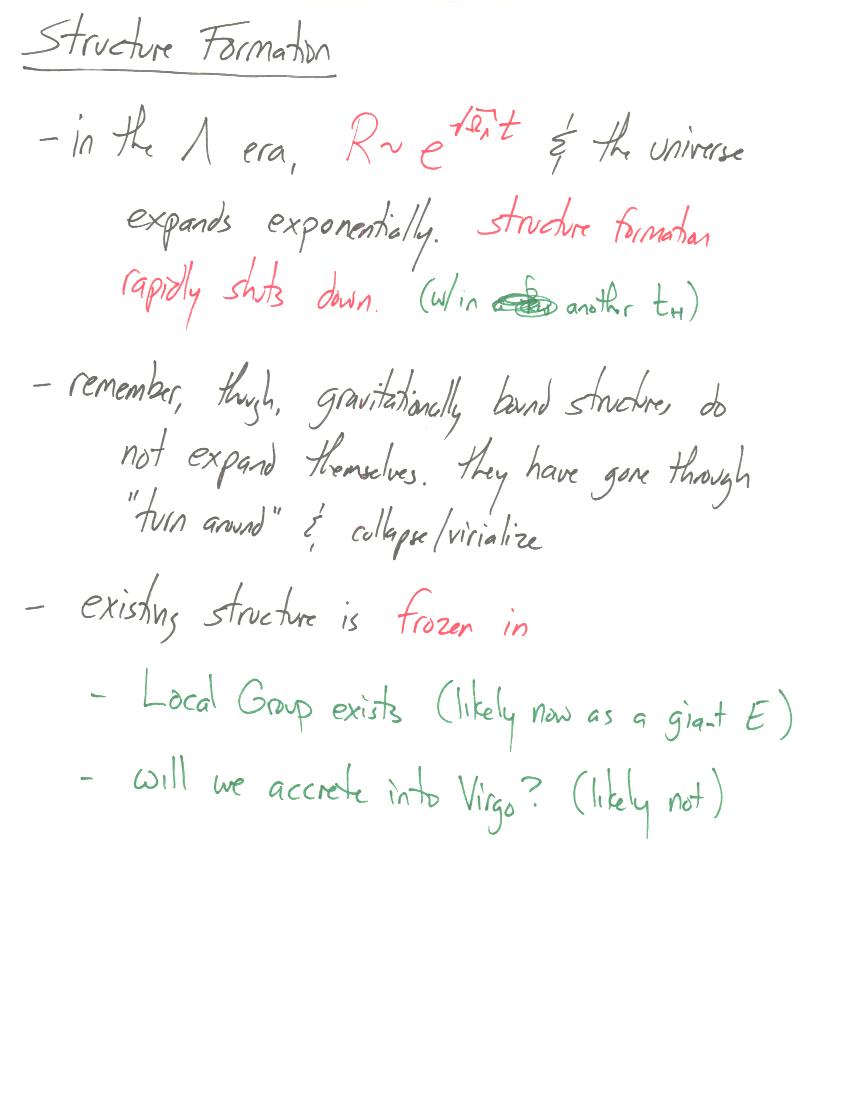 Structure Formation
- in the Λ era, R ~ e^√Ω_Λ t & the universe
expands exponentially. structure formation
rapidly shuts down. (w/in another t_H)
- remember, though, gravitationally bound structures do
not expand themselves. they have gone through
"turn around" & collapse/virialize
- existing structure is frozen in
- Local Group exists (likely now as a giant E)
- will we accrete into Virgo? (likely not)